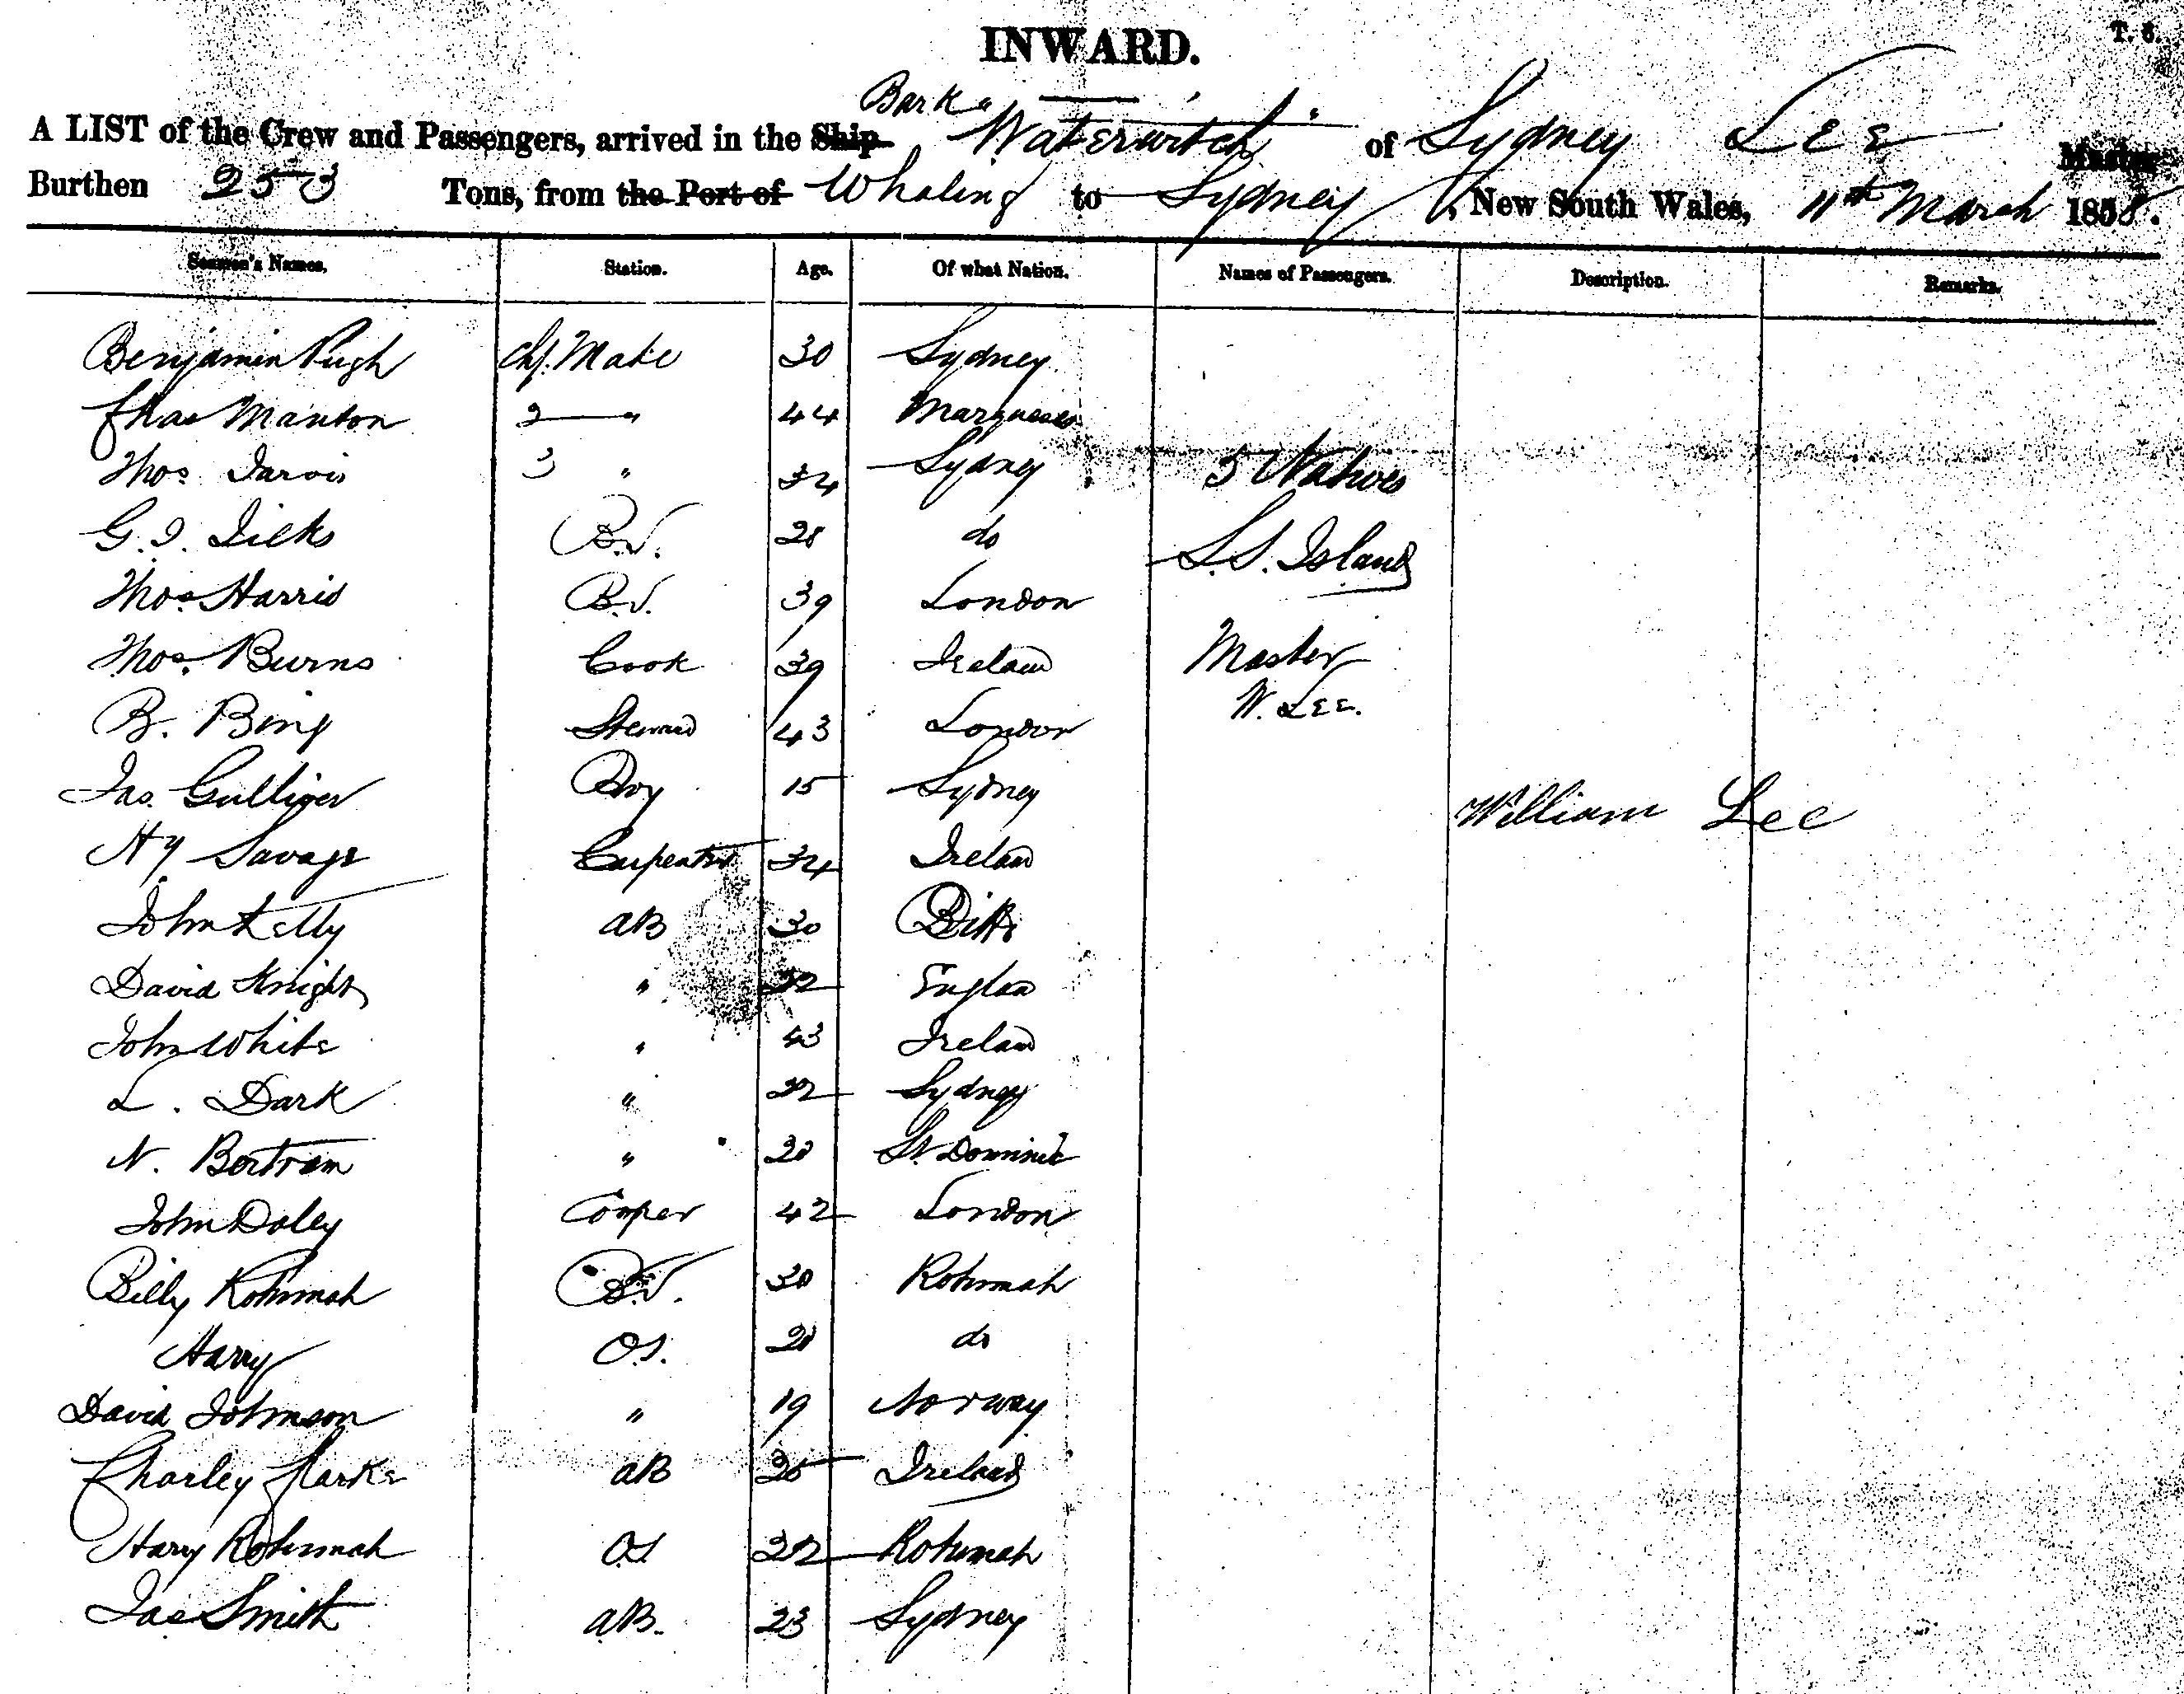 T. 5.
INWARD.
A LIST of the Crew and Passengers, arrived in the Ship Bark "Waterwitch" of Sydney Lee Master
Burthen 253 Tons, from the Port of Whaling to Sydney, New South Wales, 11th March 1858.
Seamen's Names. Station. Age. Of what Nation. Names of Passengers. Description. Remarks.
Benjamin Pugh Chf. Mate 30 Sydney
Chas Manton 2 " 44 Marquesas
Thos. Jarvis 3 " 34 Sydney 5 Natives
G. J. Dilks B.S. 28 do S.S. Island
Thos. Harris B.S. 39 London
Thos. Burns Cook 39 Ireland Master
B. Bing Steward 43 London W. Lee.
Jas. Gulliger Boy 15 Sydney William Lee
Hy Savage Carpenter 34 Ireland
John Kelly AB 30 Ditto
David Knight " 32 England
John White " 43 Ireland
L. Dark " 22 Sydney
N. Bertram " 28
John Doley Cooper 42 London
Billy Rotumah B.S. 30 Rotumah
Harry O.S. 20 do
David Johnson " 19 Norway
Charley Clarke AB 25 Ireland
Harry Rotumah OS 22 Rotumah
Jas Smith AB. 23 Sydney